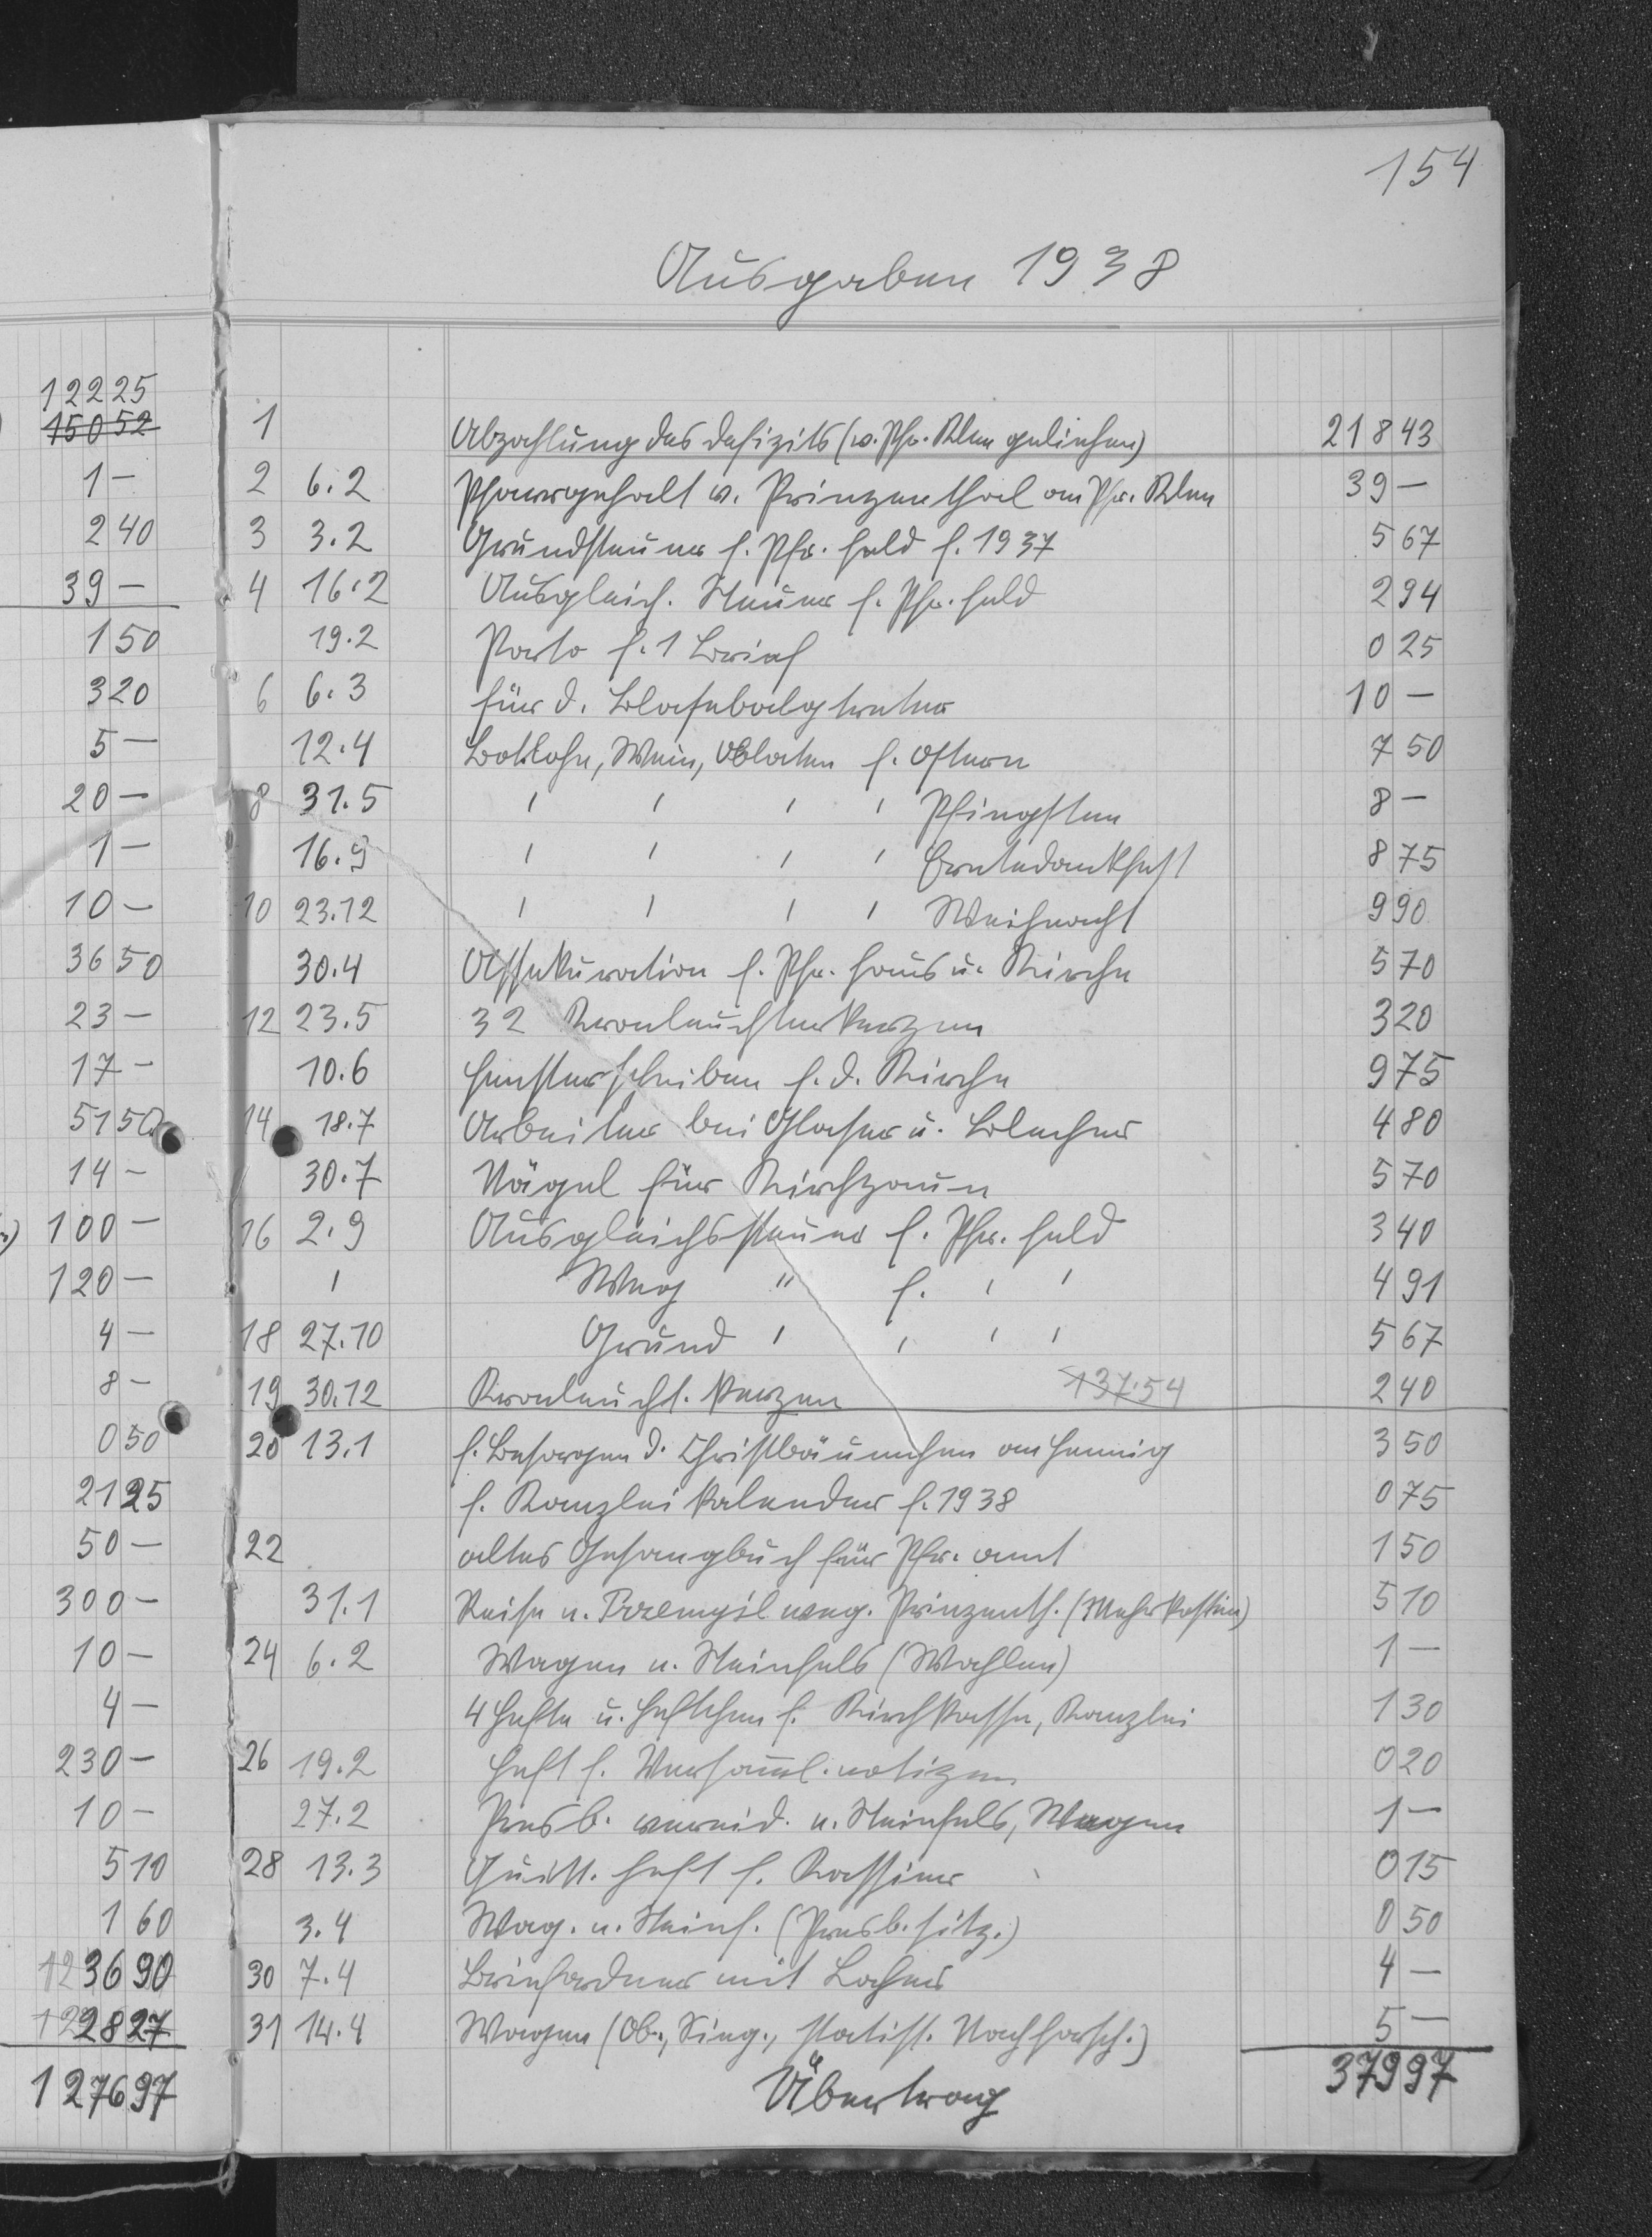 154
Ausgaben 1938
12225
15052
1 –
2 40
39 –
1 50
3 20
5 –
20 –
1 –
10 –
36 50
23 –
17 –
51 50
14 –
100 –
120 –
4 –
8 –
0 50
21 25
50 –
300 –
10 –
4 –
230 –
10 –
5 10
1 60
1236 90
2827
1276 97
1 Abzahlung des Defizits (v. Pfr. Klee geliehen) 218 43
2 6.2 Pfarrgehalt v. Prinzenthal an Pfr. Klee 39 –
3 3.2 Grundsteuer f. Pfr. feld f. 1937 5 67
4 16.2 Ausgleich. Steuer f. Pfr. feld 2 94
19.2 Porto f. 1 Brief 0 25
6 6.3 für d. Blasebalgtreter 10 –
12.4 Botlohn, Wein, Oblaten f. Ostern 7 50
8 31.5 ' ' ' ' Pfingsten 8 –
16.9 ' ' ' ' Erntedankfest 8 75
10 23.12 ' ' ' ' Weihnacht 9 90
30.4 Assekuration f. Pfr. haus u. Kirche 5 70
12 23.5 32 Kronleuchterkerzen 3 20
10.6 Fensterscheiben f. d. Kirche 9 75
14 18.7 Arbeiter bei Glaser u. Blecher 4 80
30.7 Nägel für Kirchzaun 5 70
16 2.9 Ausgleichssteuer f. Pfr. feld 3 40
' Weg " f. ' ' 4 91
18 27.10 Grund ' ' ' ' 5 67
19 30.12 Kronleucht. kerzen 137.54 2 40
20 13.1 f. Besorgen d. Christbäumchen an Hennig 3 50
f. Kanzleikalender f. 1938 0 75
22 altes Gesangbuch für Pfr. amt 1 50
31.1 Reise n. Przemyśl weg. Prinzenth. (Mehrkosten) 5 10
24 6.2 Wagen n. Steinfels (Wahlen) 1 –
4 Hefte u. Heftchen f. Kirchkasse, Kanzlei 1 30
26 19.2 Heft f. Versamml. notizen 0 20
27.2 Presb. vereid. n. Steinfels, Wagen 1 –
28 13.3 Quitt. heft f. Kassier 0 15
3.4 Wag. n. Steinf. (Presb. sitz.) 0 50
30 7.4 Briefordner mit Locher 4 –
31 14.4 Wagen (Ob., Sing., statist. Nachforsch.) 5 –
Übertrag 379 97